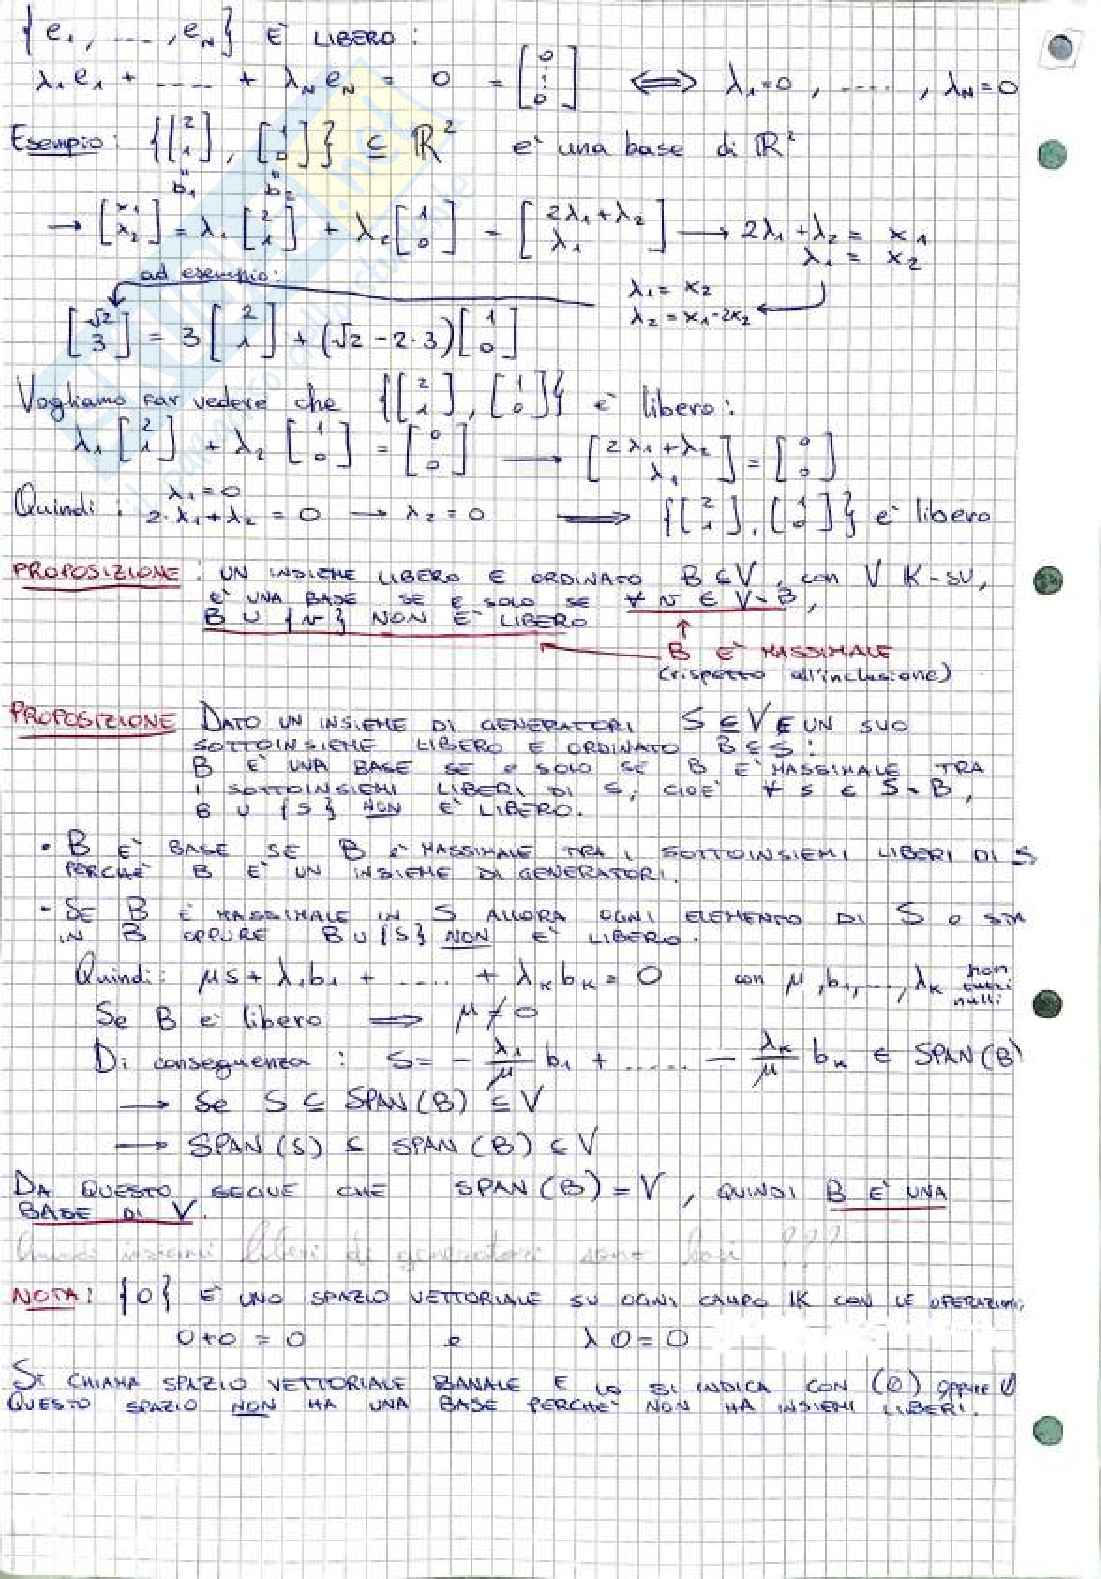 {e₁, ....., e_N} È LIBERO:
λ₁e₁ + ..... + λ_N e_N = 0 = [0 ⋮ 0] ⟺ λ₁=0, ....., λ_N=0
Esempio: {[2 1], [1 0]} ⊆ ℝ² e' una base di ℝ²
b₁ b₂
→ [x₁ x₂] = λ₁ [2 1] + λ₂ [1 0] = [2λ₁+λ₂ λ₁] → 2λ₁+λ₂ = x₁
λ₁ = x₂
ad esempio:
λ₁ = x₂
λ₂ = x₁-2x₂
[√2 3] = 3 [2 1] + (√2 - 2·3) [1 0]
Vogliamo far vedere che {[2 1], [1 0]} e' libero:
λ₁ [2 1] + λ₂ [1 0] = [0 0] → [2λ₁+λ₂ λ₁] = [0 0]
Quindi: λ₁=0
2·λ₁+λ₂ = 0 → λ₂=0 ⟹ {[2 1], [1 0]} e' libero
PROPOSIZIONE: UN INSIEME LIBERO E ORDINATO B⊆V, con V K-SV,
E' UNA BASE SE E SOLO SE ∀ v ∈ V∖B,
B ∪ {v} NON E' LIBERO
↑
B E' MASSIMALE
(rispetto all'inclusione)
PROPOSIZIONE DATO UN INSIEME DI GENERATORI S ⊆ V E UN SUO
SOTTOINSIEME LIBERO E ORDINATO B⊆S:
B E' UNA BASE SE E SOLO SE B E' MASSIMALE TRA
I SOTTOINSIEMI LIBERI DI S, CIOE' ∀ s ∈ S∖B,
B ∪ {s} NON E' LIBERO.
• B E' BASE SE B E' MASSIMALE TRA I SOTTOINSIEMI LIBERI DI S
PERCHE' B E' UN INSIEME DI GENERATORI.
- SE B E' MASSIMALE IN S ALLORA OGNI ELEMENTO DI S O STA
IN B OPPURE B∪{S} NON E' LIBERO.
Quindi: μs + λ₁b₁ + ..... + λ_K b_K = 0 con μ, b₁, ...., λ_K non tutti nulli
Se B e' libero ⟹ μ ≠ 0
Di conseguenza: S = - λ₁/μ b₁ + ..... - λ_K/μ b_K ∈ SPAN(B)
→ Se S ⊆ SPAN(B) ⊆ V
→ SPAN(S) ⊆ SPAN(B) ⊆ V
DA QUESTO SEGUE CHE SPAN(B) = V, QUINDI B E' UNA
BASE DI V.
Quindi insiemi liberi di generatori sono basi ???
NOTA: {0} E' UNO SPAZIO VETTORIALE SU OGNI CAMPO IK CON LE OPERAZIONI;
0+0 = 0 e λ0 = 0
SI CHIAMA SPAZIO VETTORIALE BANALE E LO SI INDICA CON (0) oppure 0
QUESTO SPAZIO NON HA UNA BASE PERCHE' NON HA INSIEMI LIBERI.